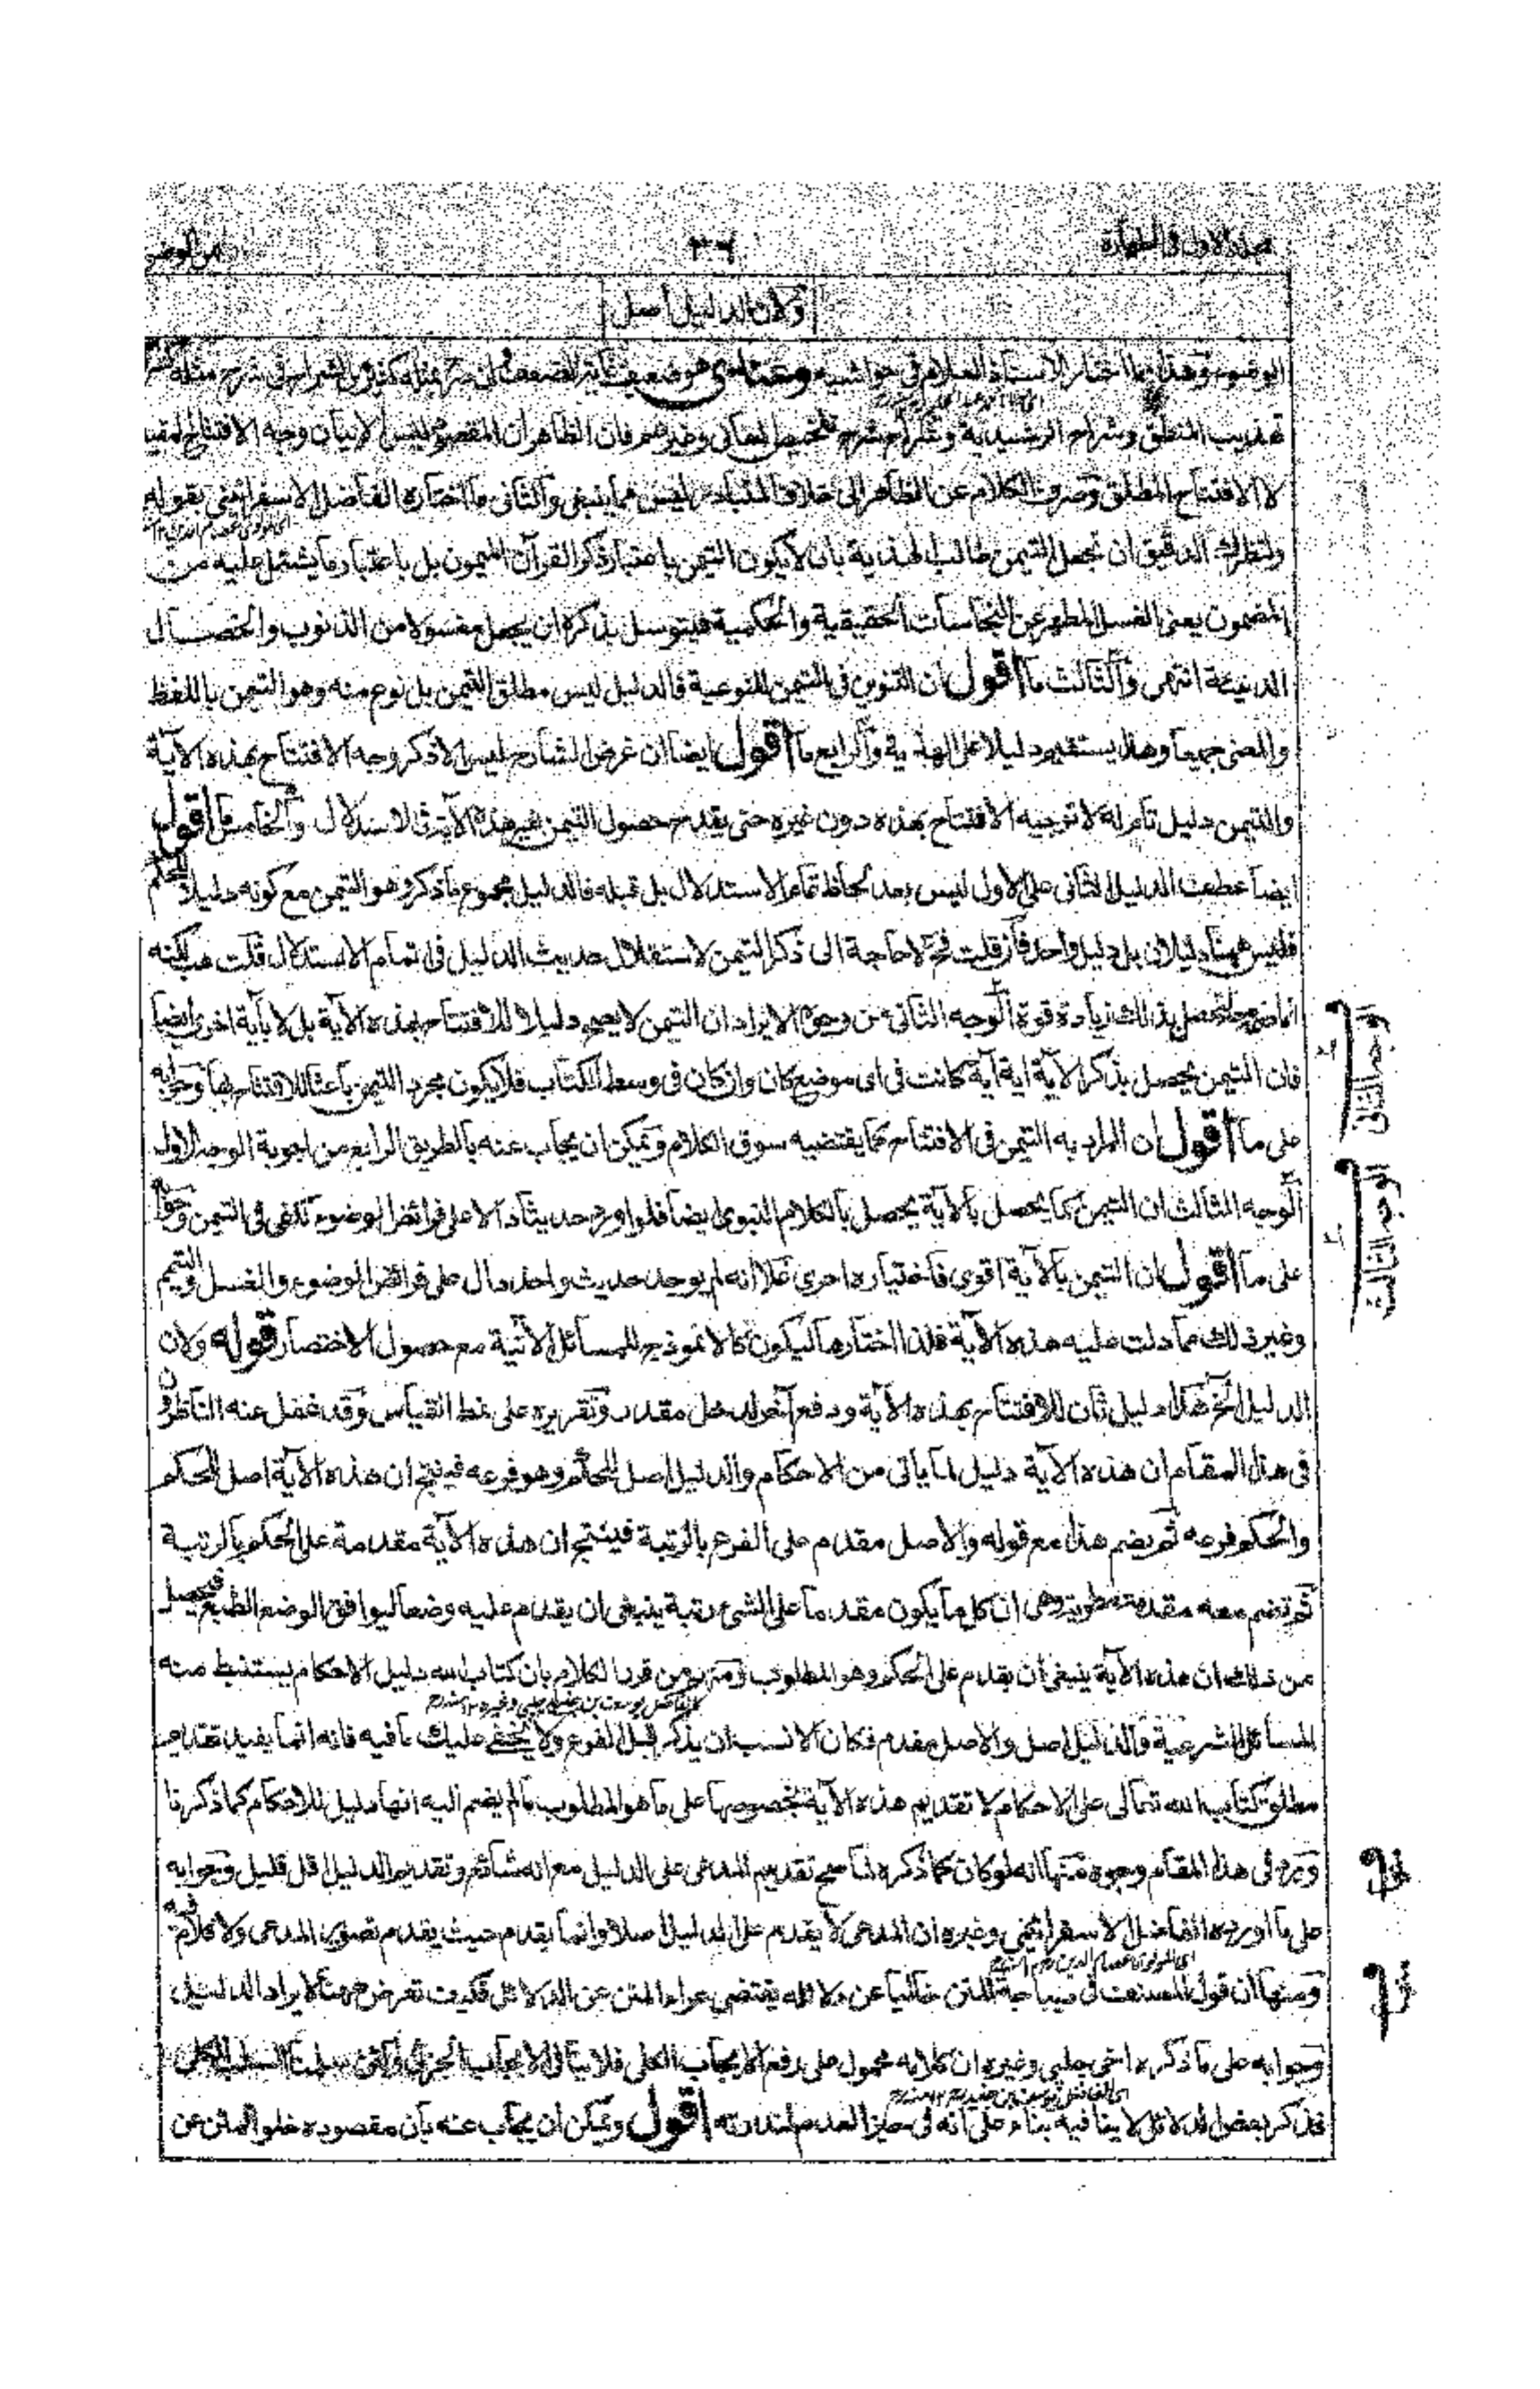 ولان الدليل اصل
الوضوء وهذا ما اختار الاستاذ العلام في حواشيه وعندي هو ضعيف غاية الضعف وان صرح بمثله كثير من الشراح في شرح
تهذيب المنطق وشراح الرشيدية وشراح شرح تلخيص المعاني وغيرهم فان الظاهر ان المقصود ليس الا بيان وجه الافتتاح المقيد
لا الافتتاح المطلق وصرف الكلام عن الظاهر الى خلاف المتبادر ليس مما ينبغي والثاني ما اختاره الفاضل الاسفرائني بقوله
ولنظرك الدقيق ان تجعل التيمن طالبا لهذية بان لا يكون التيمن باعتبار ذكر القرآن الميمون بل باعتبار ما يشتمل عليه من
المضمون يعني الغسل المطهر عن النجاسات الحقيقية والحكمية فيتوسل بذكره ان يجعل مغسولا من الذنوب والخصال
الدنية انتهى والثالث ما اقول ان التنوين في التيمن للنوعية فالدليل ليس مطلق التيمن بل نوع منه وهو التيمن باللفظ
والمعنى جميعا وهذا يستقيم دليلا على الهذية والرابع ما اقول ايضا ان غرض الشارح ليس الا ذكر وجه الافتتاح بهذه الآية
والتيمن دليل تام له لا توجيه الافتتاح بهذه دون غيره حتى يقدح حصول التيمن بغير هذه الآية في الاستدلال والخامس ما اقول
ايضا عطف الدليل الثاني على الاول ليس بعد لحاظ تمام الاستدلال بل قبله فالدليل مجموع ما ذكر وهو التيمن مع كونه دليلا للحكم
فليس ههنا دليلان بل دليل واحد فان قلت فح لا حاجة الى ذكر التيمن لاستقلال حديث الدليل في تمام الاستدلال قلت هب لكنه
انما ضم معه لتحصل بذلك زيادة قوة الوجه الثاني من وجوه الايراد ان التيمن لا يصح دليلا للافتتاح بهذه الآية بل لا بآية اخرى ايضا
فان التيمن يحصل بذكر الآية اية آية كانت في اي موضع كان وان كان في وسط الكتاب فلا يكون مجرد التيمن باعثا للافتتاح بها وجوابه
على ما اقول ان المراد به التيمن في الافتتاح كما يقتضيه سوق الكلام ويمكن ان يجاب عنه بالطريق الرابع من اجوبة الوجه الاول
الوجه الثالث ان التيمن كما يحصل بالآية يحصل بالكلام النبوي ايضا فلو اورد حديثا دالا على فرائض الوضوء لكفى في التيمن وجوابه
على ما اقول ان التيمن بالآية اقوى فاختياره احرى على انه لم يوجد حديث واحد دال على فرائض الوضوء والغسل والتيمم
وغير ذلك مما دلت عليه هذه الآية فلذا اختارها ليكون كالانموذج للمسائل الآتية مع حصول الاختصار قوله ولان
الدليل الخ هذا دليل ثان للافتتاح بهذه الآية ودفع آخر لدخل مقدر وتقريره على نمط القياس وقد غفل عنه الناظرون
في هذا المقام ان هذه الآية دليل لما ياتي من الاحكام والدليل اصل للحكم وهو فرعه فينتج ان هذه الآية اصل للحكم
والحكم فرعه ثم يضم هذا مع قوله والاصل مقدم على الفرع بالرتبة فينتج ان هذه الآية مقدمة على الحكم بالرتبة
ثم تضم معه مقدمة مطوية وهي ان كل ما يكون مقدما على الشيء رتبة ينبغي ان يقدم عليه وضعا ليوافق الوضع الطبع فيحصل
من ذلك ان هذه الآية ينبغي ان يقدم على الحكم وهو المطلوب ومنهم من قرر الكلام بان كتاب الله دليل الاحكام يستنبط منه
المسائل الشرعية والدليل اصل والاصل مقدم فكان الانسب ان يذكر قبل الفرع ولا يخفى عليك ما فيه فانه انما يفيد تقديم
مطلق كتاب الله تعالى على الاحكام لا تقديم هذه الآية بخصوصها على ما هو المطلوب ما لم يضم اليه انها دليل للاحكام كما ذكرنا
ويرد في هذا المقام وجوه منها انه لو كان كما ذكره لما صح تقديم المدعى على الدليل مع انه شائع وتقديم الدليل اقل قليل وجوابه
على ما اورده الفاضل الاسفرائني وغيره ان المدعى لا يقدم على الدليل اصلا وانما يقدم حيث يقدم تصوير المدعى ولا كلام فيه
ومنها ان قول المصنف في ديباجة المتن خاليا عن دلائله يقتضي عراء المتن عن الدلائل فكيف تعرض ههنا لايراد الدليل
وجوابه على ما ذكره اخي چلپي وغيره ان كلامه محمول على رفع الايجاب الكلي فلا ينافي الايجاب الجزئي ولئن سلمنا السلب الكلي
فذكر بعض الدلائل لا ينافيه بناء على انه في حيز العدم لندرته اقول ويمكن ان يجاب عنه بان مقصوده خلو المتن عن
الوجه الثاني
الوجه الثالث